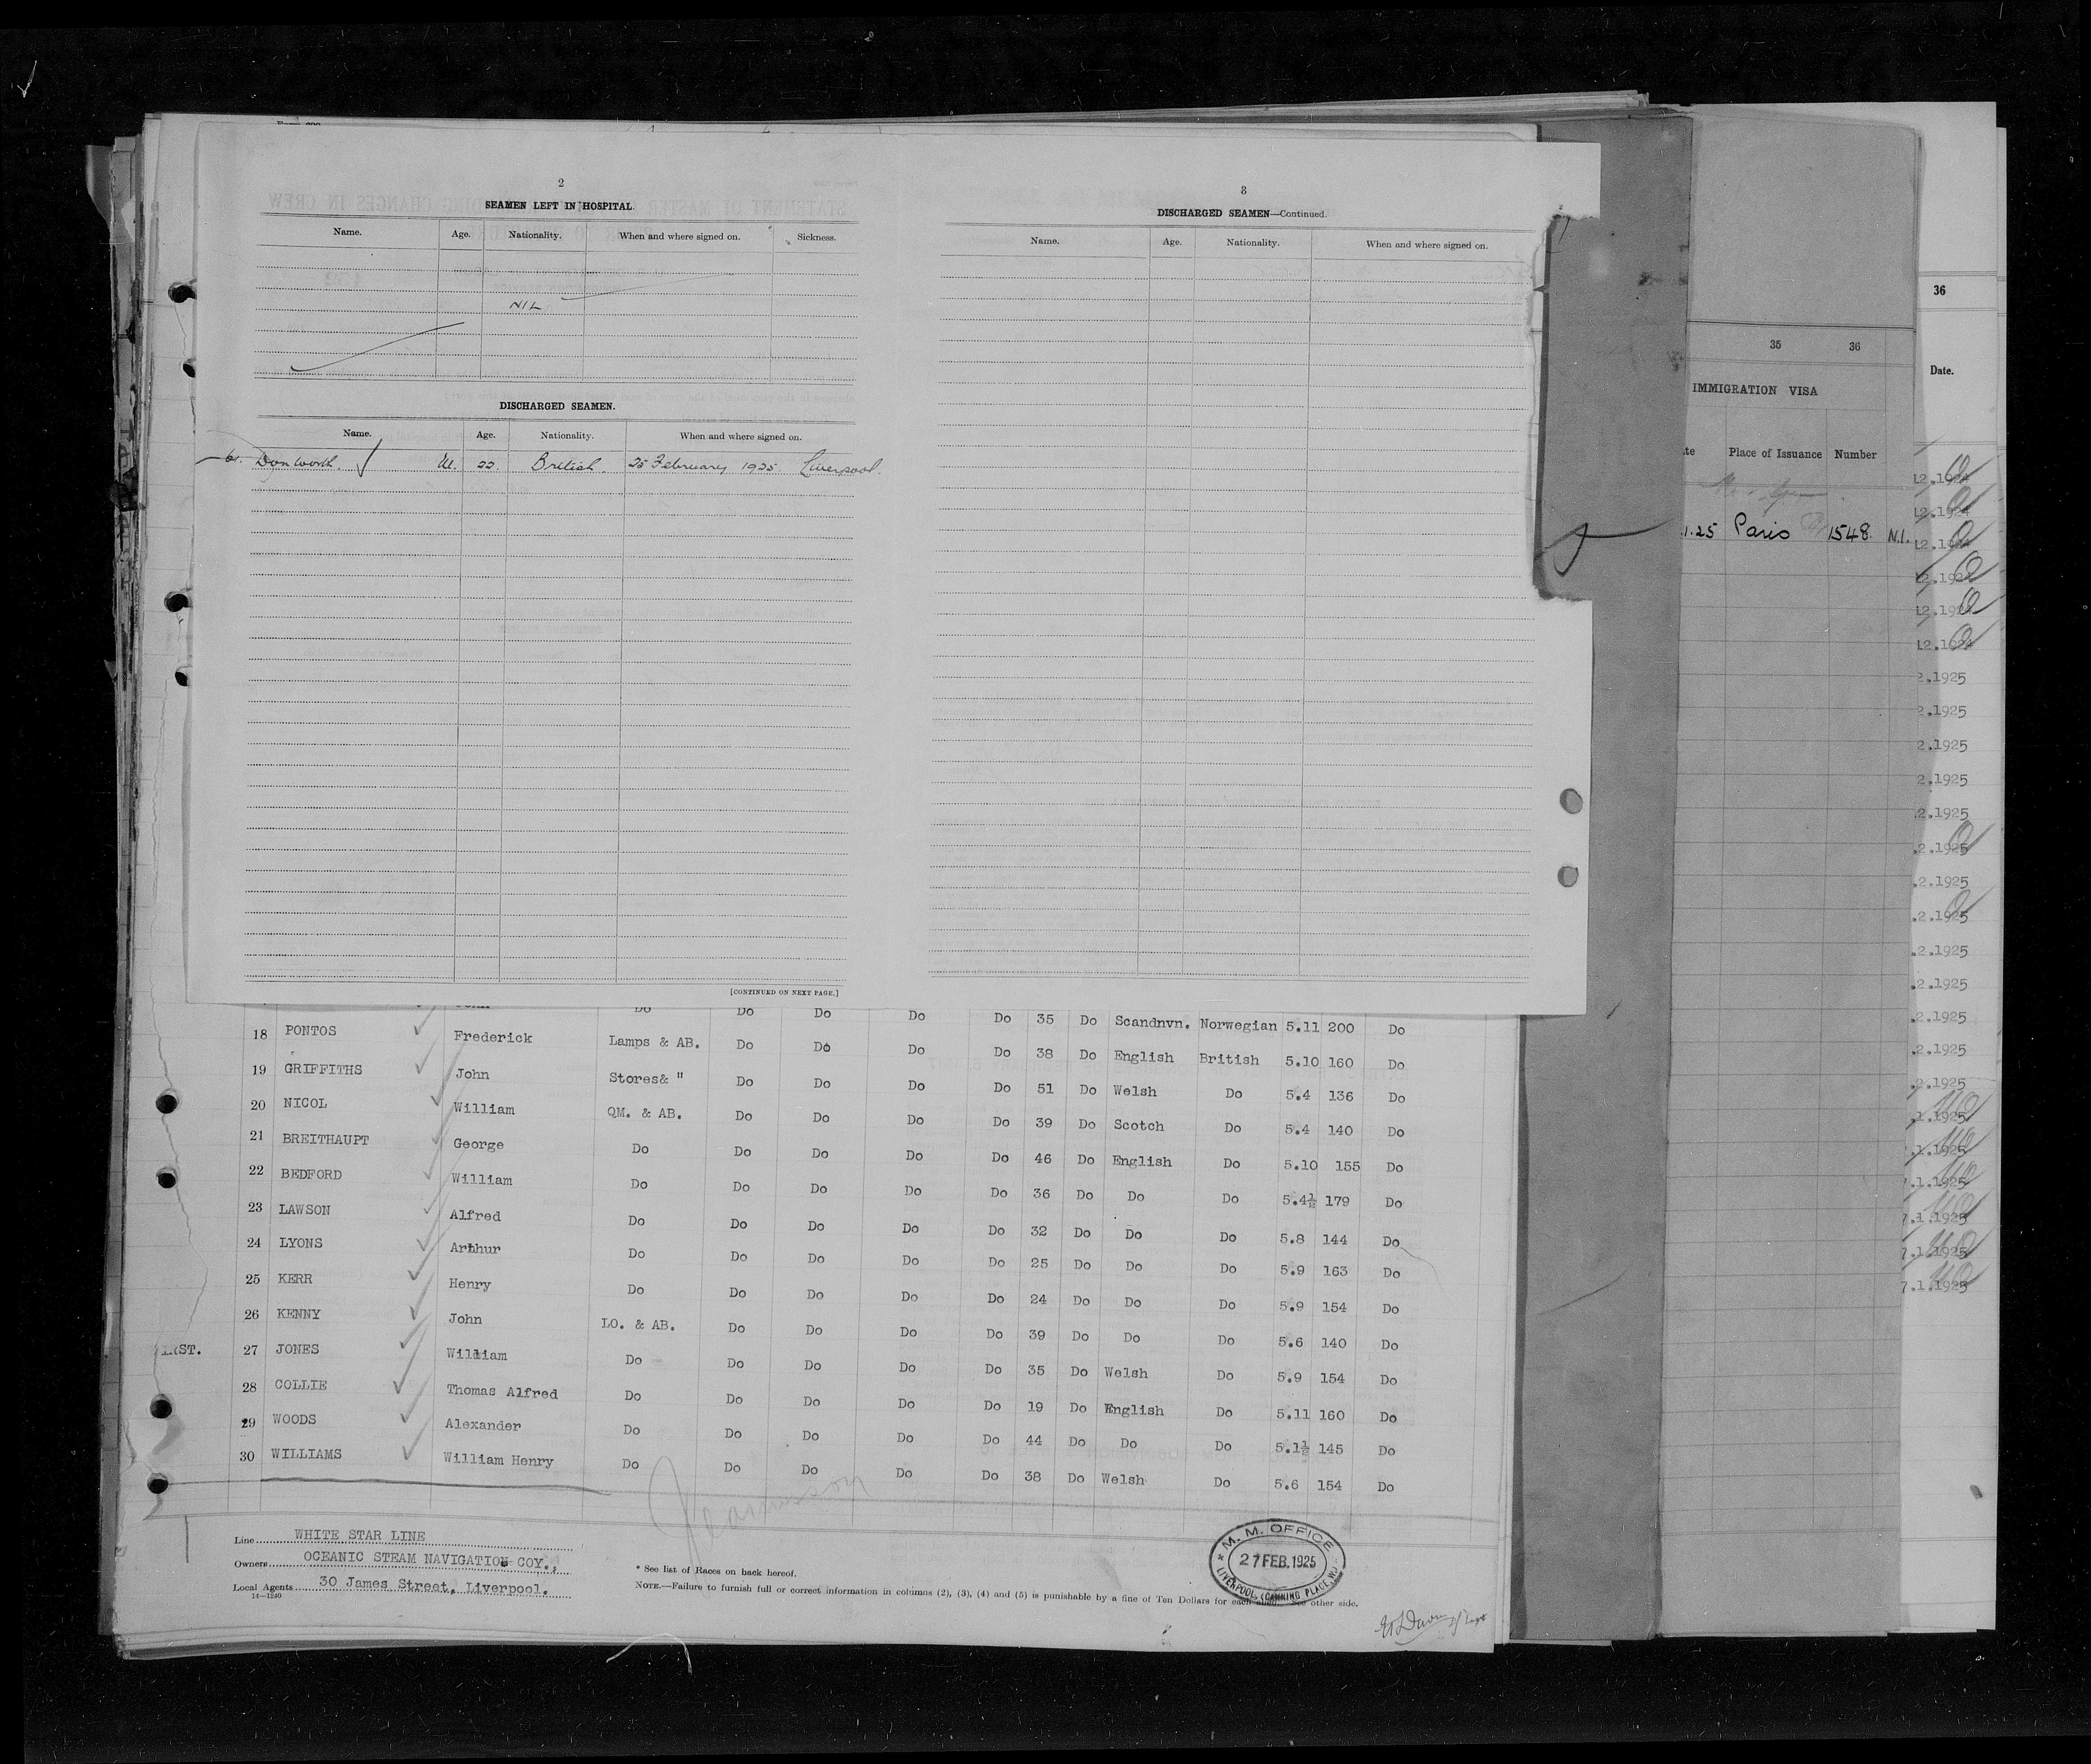 2
SEAMEN LEFT IN HOSPITAL.
Name. Age. Nationality. When and where signed on. Sickness.
NIL
DISCHARGED SEAMEN.
Name. Age. Nationality. When and where signed on.
61. Donworth. M. 22. British. 25 February 1925 Liverpool.
[CONTINUED ON NEXT PAGE.]
3
DISCHARGED SEAMEN—Continued.
Name. Age. Nationality. When and where signed on.
35 36
IMMIGRATION VISA
Place of Issuance Number
.1.25 Paris 1548 N.I.
36
Date.
12.1924
12.1924
12.1924
12.1924
12.1924
12.1924
2.1925
2.1925
2.1925
2.1925
2.1925
.2.1925
.2.1925
.2.1925
.2.1925
.2.1925
.2.1925
.2.1925
.2.1925
.1.1925
.1.1925
7.1.1925
7.1.1925
7.1.1925
7.1.1925
John Do Do Do Do Do 35 Do Scandnvn. Norwegian 5.11 200 Do
18 PONTOS Frederick Lamps & AB. Do Do Do Do 38 Do English British 5.10 160 Do
19 GRIFFITHS John Stores& " Do Do Do Do 51 Do Welsh Do 5.4 136 Do
20 NICOL William QM. & AB. Do Do Do Do 39 Do Scotch Do 5.4 140 Do
21 BREITHAUPT George Do Do Do Do Do 46 Do English Do 5.10 155 Do
22 BEDFORD William Do Do Do Do Do 36 Do Do Do 5.4½ 179 Do
23 LAWSON Alfred Do Do Do Do Do 32 Do Do Do 5.8 144 Do
24 LYONS Arthur Do Do Do Do Do 25 Do Do Do 5.9 163 Do
25 KERR Henry Do Do Do Do Do 24 Do Do Do 5.9 154 Do
26 KENNY John LO. & AB. Do Do Do Do 39 Do Do Do 5.6 140 Do
27 JONES William Do Do Do Do Do 35 Do Welsh Do 5.9 154 Do
28 COLLIE Thomas Alfred Do Do Do Do Do 19 Do English Do 5.11 160 Do
29 WOODS Alexander Do Do Do Do Do 44 Do Do Do 5.1½ 145 Do
30 WILLIAMS William Henry Do Do Do Do Do 38 Do Welsh Do 5.6 154 Do
Line WHITE STAR LINE
Owners OCEANIC STEAM NAVIGATION COY.,
Local Agents 30 James Street, Liverpool.
14—1240
* See list of Races on back hereof.
NOTE.—Failure to furnish full or correct information in columns (2), (3), (4) and (5) is punishable by a fine of Ten Dollars for each alien. See other side.
M. M. OFFICE
27 FEB. 1925
LIVERPOOL, (CANNING PLACE, W.)